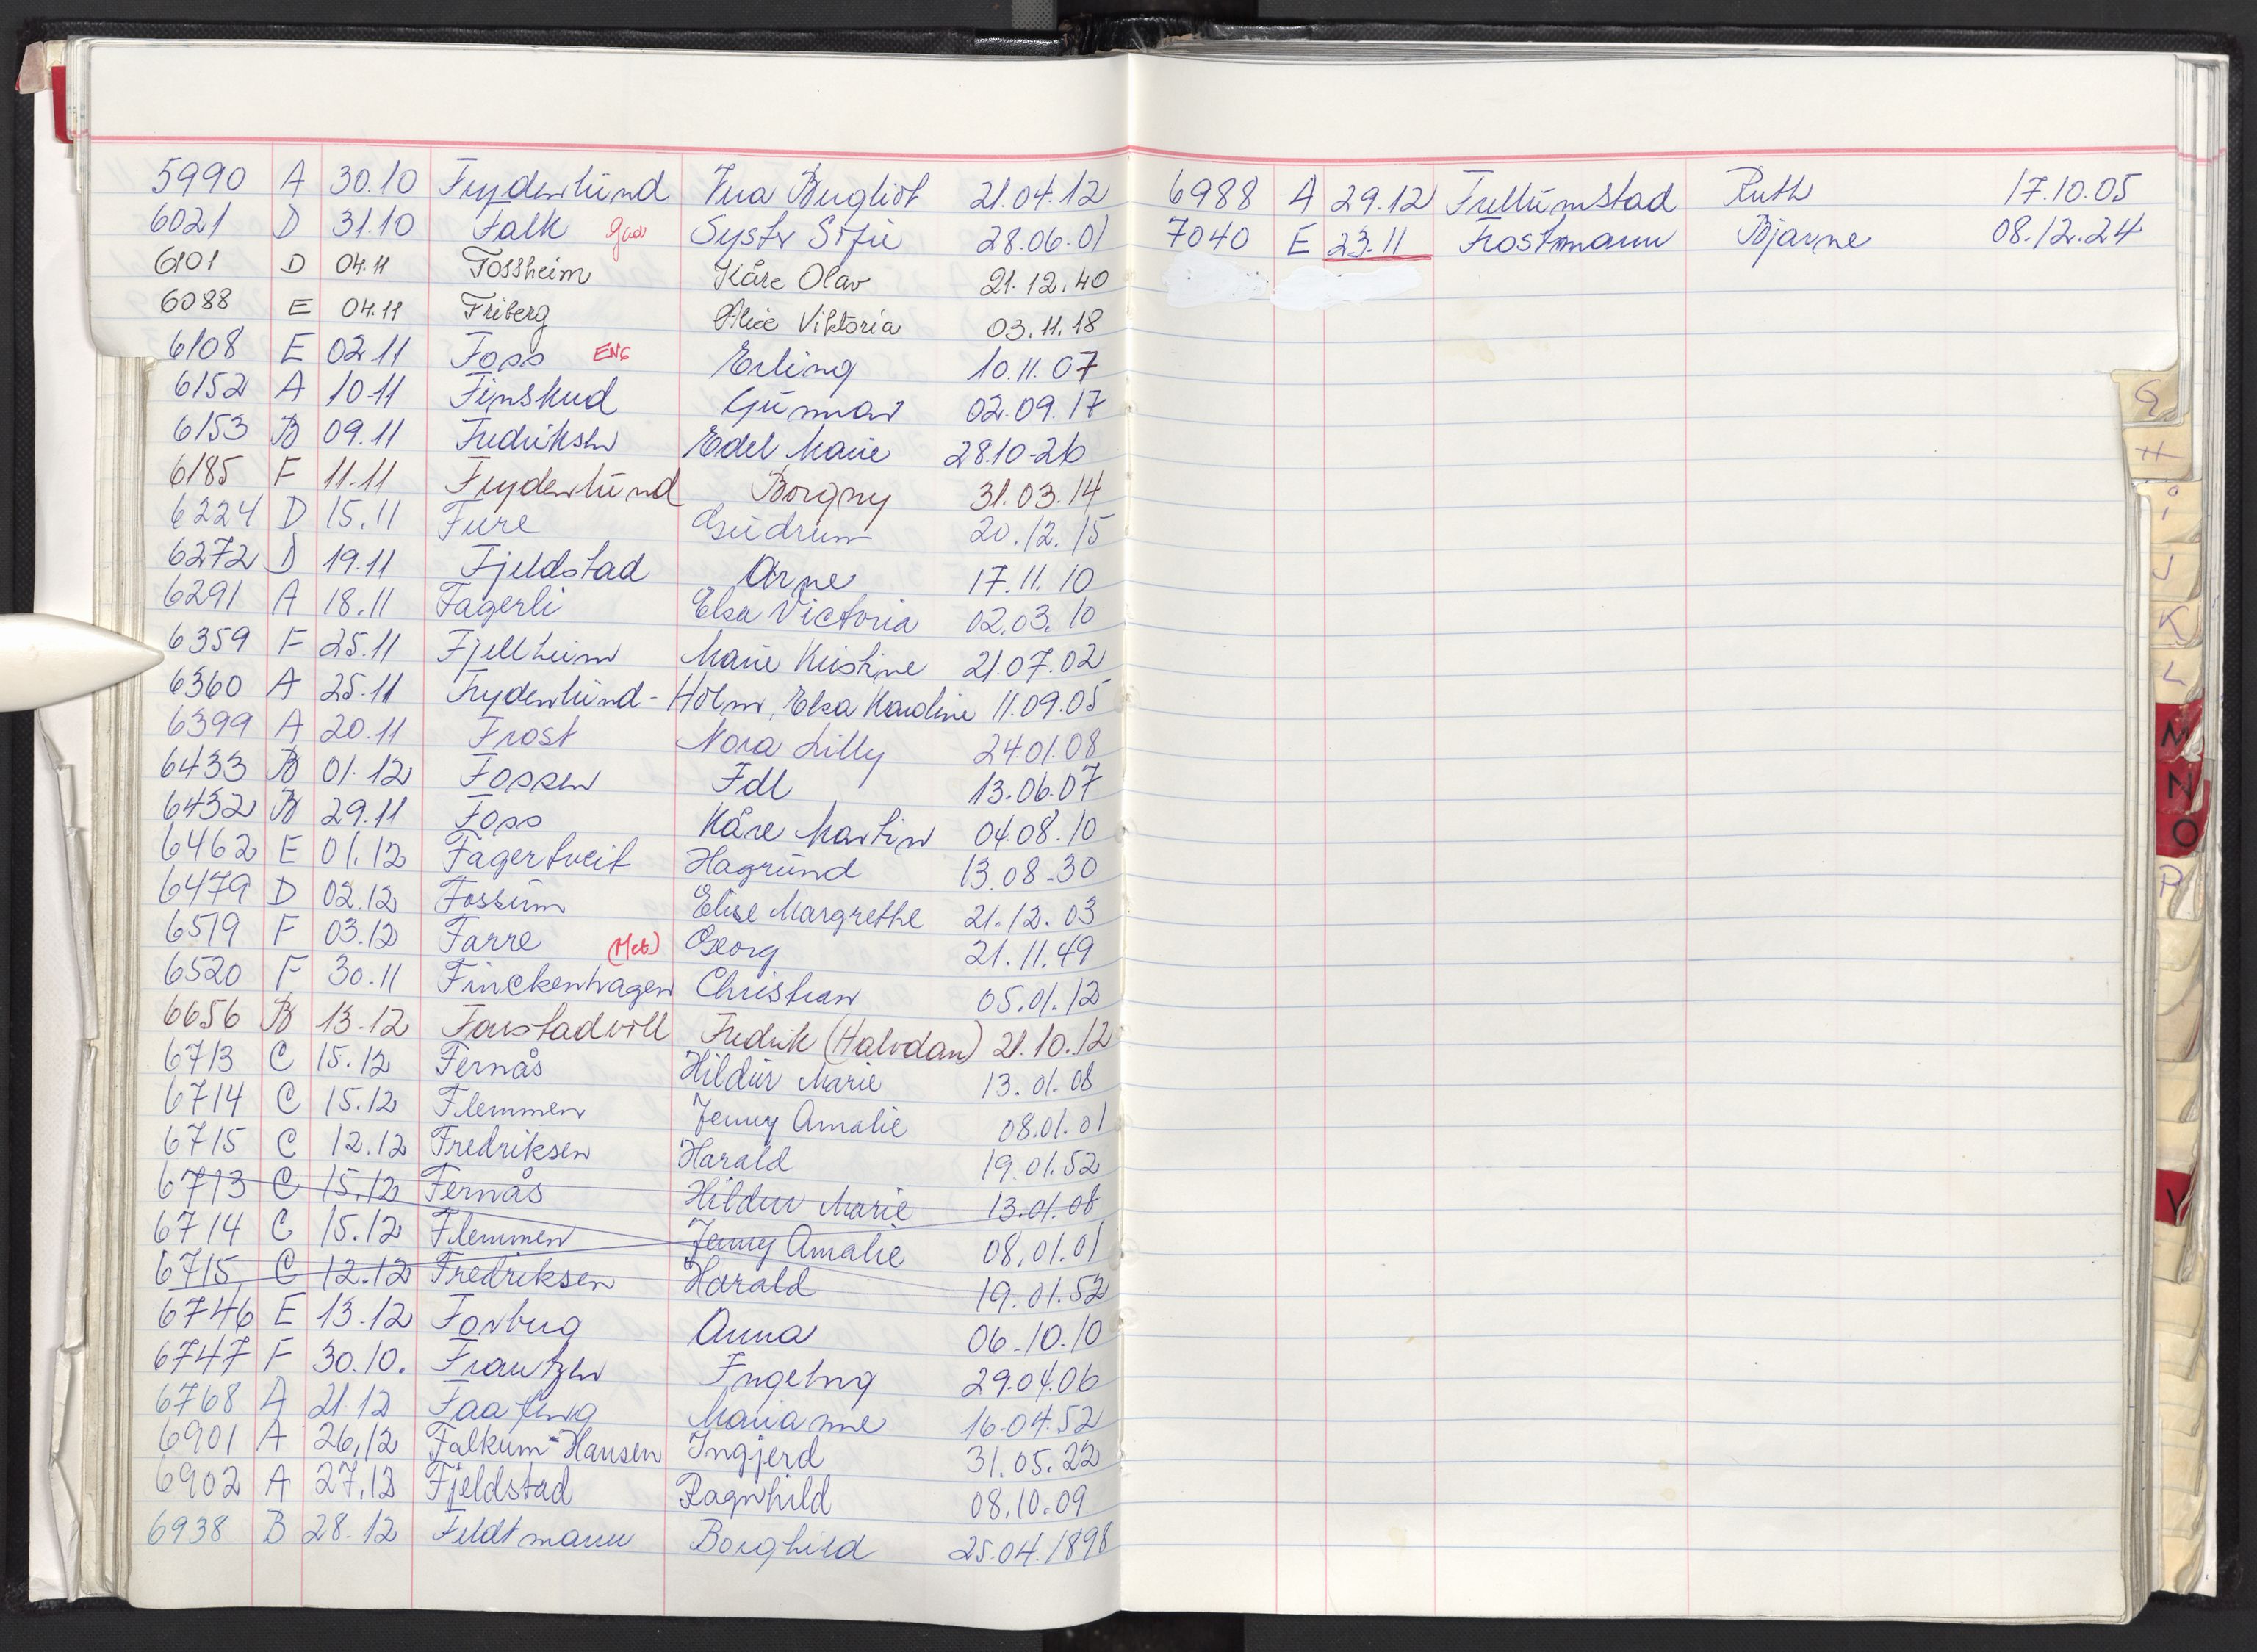 5990 A 30.10 Frydenlund Vera Bergliot 21.04.12
6021 D 31.10 Falk Syster Sofie 28.06.01
6101 D 04.11 Fossheim Kåre Olav 21.12.40
6088 E 04.11 Friberg Alice Viktoria 03.11.18
6108 E 02.11 Foss ENG Erling 10.11.07
6152 A 10.11 Finskud Gunnar 02.09.17
6153 B 09.11 Fredriksen Edel Marie 28.10-26
6185 F 11.11 Frydenlund Borgny 31.03.14
6224 D 15.11 Fure Gudrun 20.12.15
6272 D 19.11 Fjeldstad Arne 17.11.10
6291 A 18.11 Fagerli Elsa Victoria 02.03.10
6359 F 25.11 Fjellheim Marie Kristine 21.07.02
6360 A 25.11 Frydenlund-Holm, Elsa Karoline 11.09.05
6399 A 20.11 Frost Nora Lilly 24.01.08
6433 B 01.12 Fossen 13.06.07
6432 B 29.11 Foss Kåre Martin 04.08.10
6462 E 01.12 Fagertveit Hagrund 13.08.30
6479 D 02.12 Fossum Elise Margrethe 21.12.03
6519 F 03.12 Farre (Met) Georg 21.11.49
6520 F 30.11 Finckenhagen Christian 05.01.12
6656 B 13.12 Farstadvoll Fredrik (Halvdan) 21.10.12
6713 C 15.12 Fernås Hildur Marie 13.01.08
6714 C 15.12 Flemmen Jenny Amalie 08.01.01
6715 C 12.12 Fredriksen Harald 19.01.52
6713 C 15.12 Fernås Hildur Marie 13.01.08
6714 C 15.12 Flemmen Jenny Amalie 08.01.01
6715 C 12.12 Fredriksen Harald 19.01.52
6746 E 13.12 Forberg Anna 06.10.10
6747 F 30.10. Frantzen Ingeborg 29.04.06
6768 A 21.12 Faafeng Marianne 16.04.52
6901 A 26.12 Falkum-Hansen Ingjerd 31.05.22
6902 A 27.12 Fjeldstad Ragnhild 08.10.09
6938 B 28.12 Feldtmann Borghild 25.04.1898
6988 A 29.12 Frellumstad Ruth 17.10.05
7040 E 23.11 Frostmann Bjarne 08.12.24
G
H
i
J
K
L
M
N
O
P
V